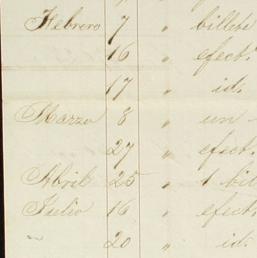 Febrero 7 " billete
16 " efect.
17 " id.
Marzo 8 " un
27 " efect.
Abril 25 " 1 bil
Julio 16 " efect.
" 20 " id.